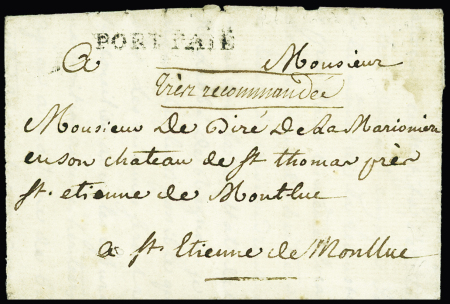 PORT PAIÉ
A Monsieur
très recommandée
Monsieur De Biré De La Marionière
en son chateau de St thomas près
St. etienne de Montluc
a St. Etienne de Montluc